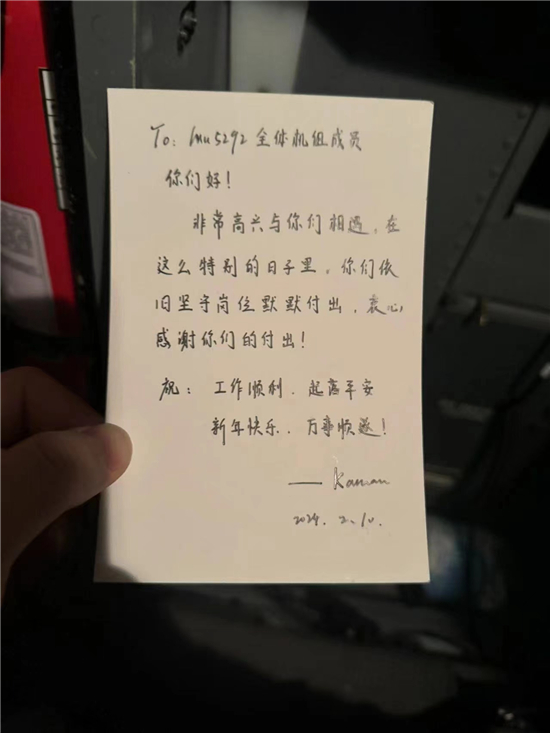 To: mu5292全体机组成员
你们好！
非常高兴与你们相遇，在
这么特别的日子里，你们依
旧坚守岗位默默付出，衷心
感谢你们的付出！
祝： 工作顺利．起落平安
新年快乐．万事顺遂！
—— Kaman
2024. 2. 10.